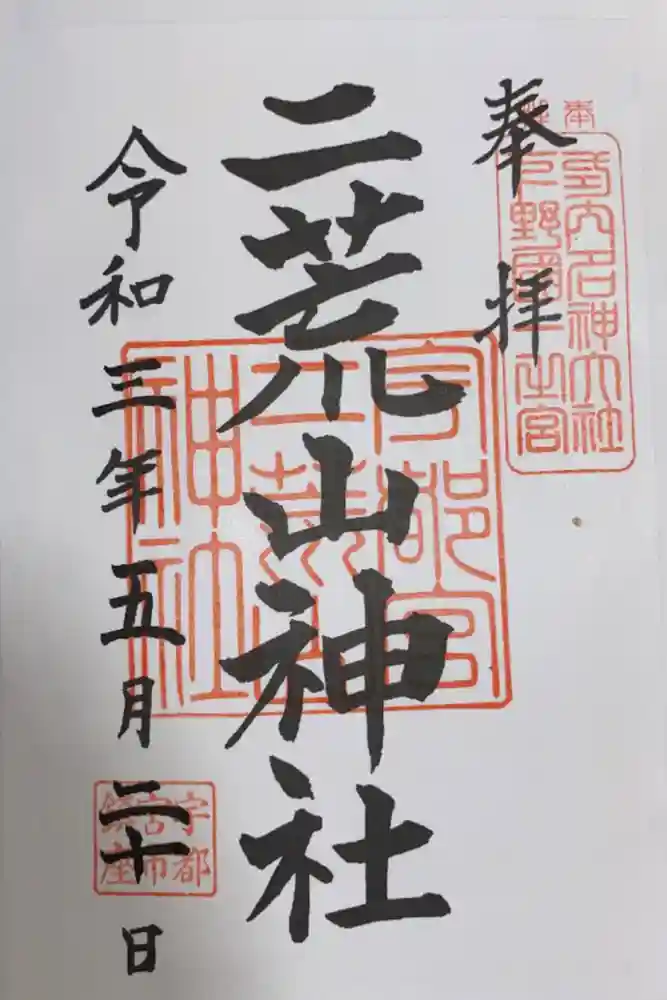 奉拝
式内名神大社
下野國一之宮
二荒山神社
宇都宮
二荒山
神社
令和三年五月二十日
宇都
宮市
鎮座